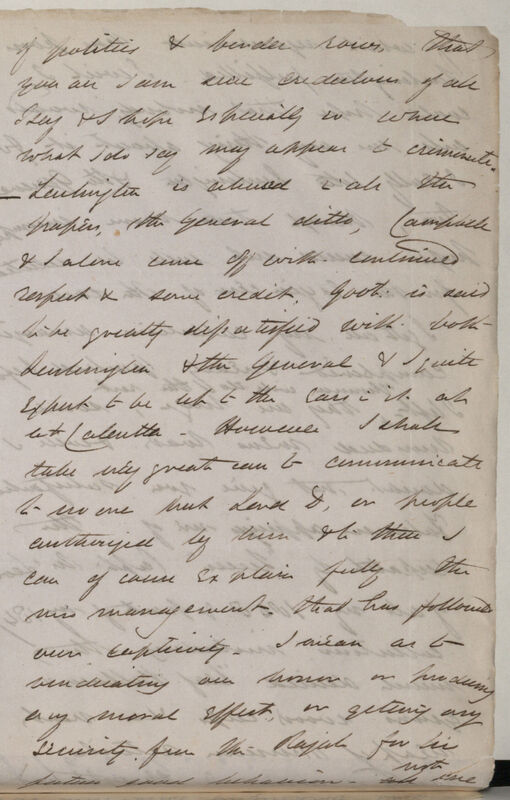 of politics & border rows, that
you are I am sure credulous of all
I say & I hope Especially so where
what I do say may appear to criminate.
Lushington is abused in all the
papers, the General ditto, Campbell
& I alone come off with continued
respect & some credit. Govt. is said
to be greatly dissatisfied with both
Lushington & the General & I quite
Expect to be let to the
at Calcutta - However I shall
take very great care to communicate
to no one but Lord D, or people
authorized by him & to them I
can of course Explain fully the
mis management that has followed
our captivity. I mean as to
vindicating our honor or producing
any moral Effect, or getting any
security from the Rajah for his
future good behaviour - not one